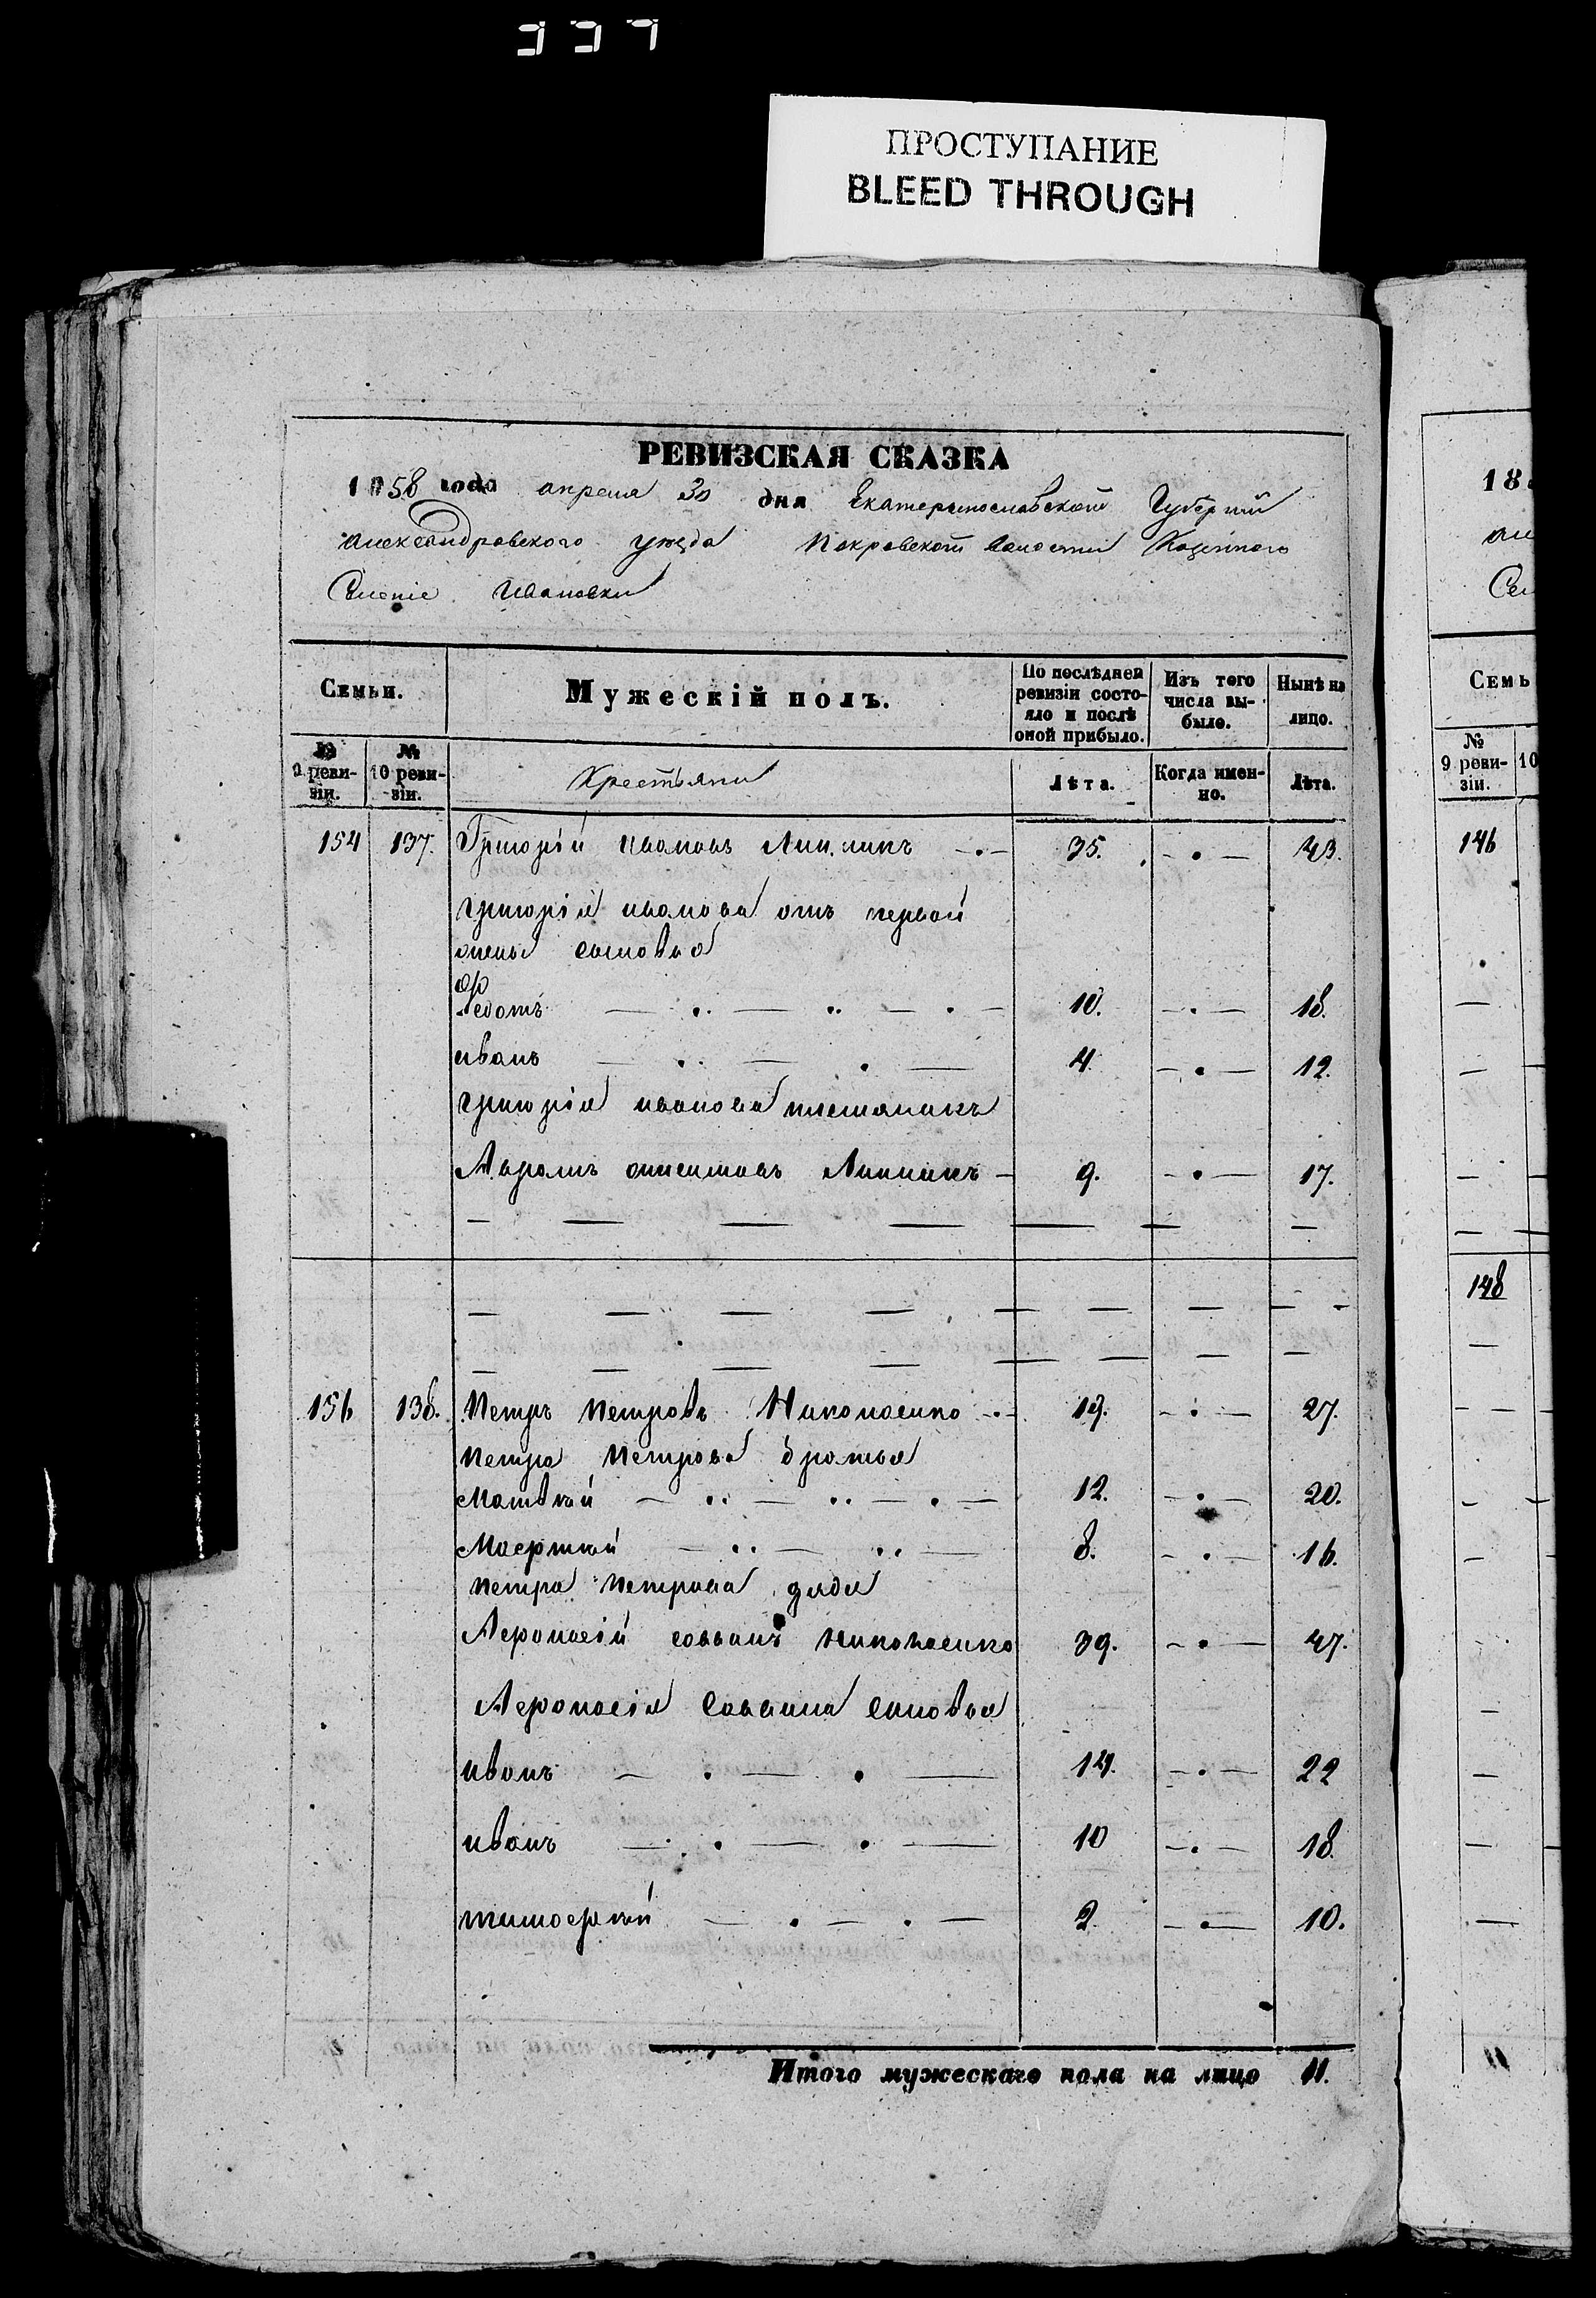 337
ПРОСТУПАНИЕ
BLEED THROUGH
РЕВИЗСКАЯ СКАЗКА
1858 года апреля 30 дня Екатеринославской Губернии
Александровского уезда Покровской волости Казенного
Селение Ивановки
Семьи. Мужескій полъ. По послѣдней ревизіи состояло и послѣ оной прибыло. Изъ того числа выбыло. Нынѣ на лицо.
№ 9 ревизіи. № 10 ревизіи. Крестьяни Лѣта. Когда именно. Лѣта.
154 137. Григорій Ивановъ 35. 43.
Григорія Иванова отъ первой
жены сыновья
Федотъ 10. 18.
Иванъ 4. 12.
Григорія Иванова племяникъ
Авраамъ 9. 17.
156 138. Петръ Петровъ Николаенко 19. 27.
Петра Петрова братья
Матвѣй 12. 20.
8. 16.
Петра Петрова дядя
Афонасій Саввинъ Николаенко 39. 47.
Афонасія Саввина сыновья
Иванъ 14. 22
Иванъ 10 18.
Тимофѣй 2. 10.
Итого мужескаго пола на лицо 11.
18
Семь
№ 9 ревизіи. 10
146
148
11